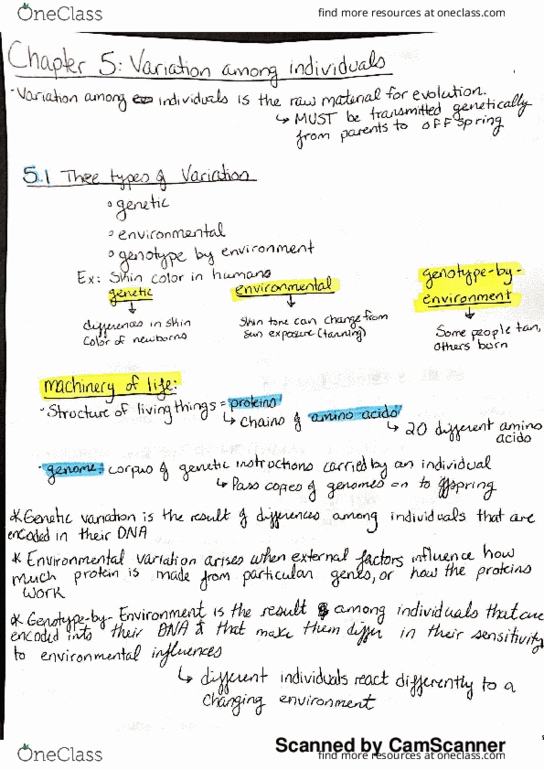 OneClass
find more resources at oneclass.com
Chapter 5: Variation among individuals
· Variation among individuals is the raw material for evolution.
↳ MUST be transmitted genetically
from parents to offspring
5.1 Thee types of Variation
° genetic
° environmental
° genotype by environment
Ex: Skin color in humans
genetic
differences in skin
color of newborns
environmental
Skin tone can change from
sun exposure (tanning)
genotype-by-
environment
Some people tan,
others burn
machinery of life:
· Structure of living things = proteins
↳ chains of amino acids
↳ 20 different amino
acids
· genome: corpus of genetic instructions carried by an individual
↳ Pass copies of genomes on to offspring
* Genetic variation is the result of differences among individuals that are
encoded in their DNA
* Environmental variation arises when external factors influence how
much protein is made from particular genes, or how the proteins
work
* Genotype-by-Environment is the result among individuals that are
encoded into their DNA & that make them differ in their sensitivity
to environmental influences
↳ different individuals react differently to a
changing environment
Scanned by CamScanner
OneClass
find more resources at oneclass.com